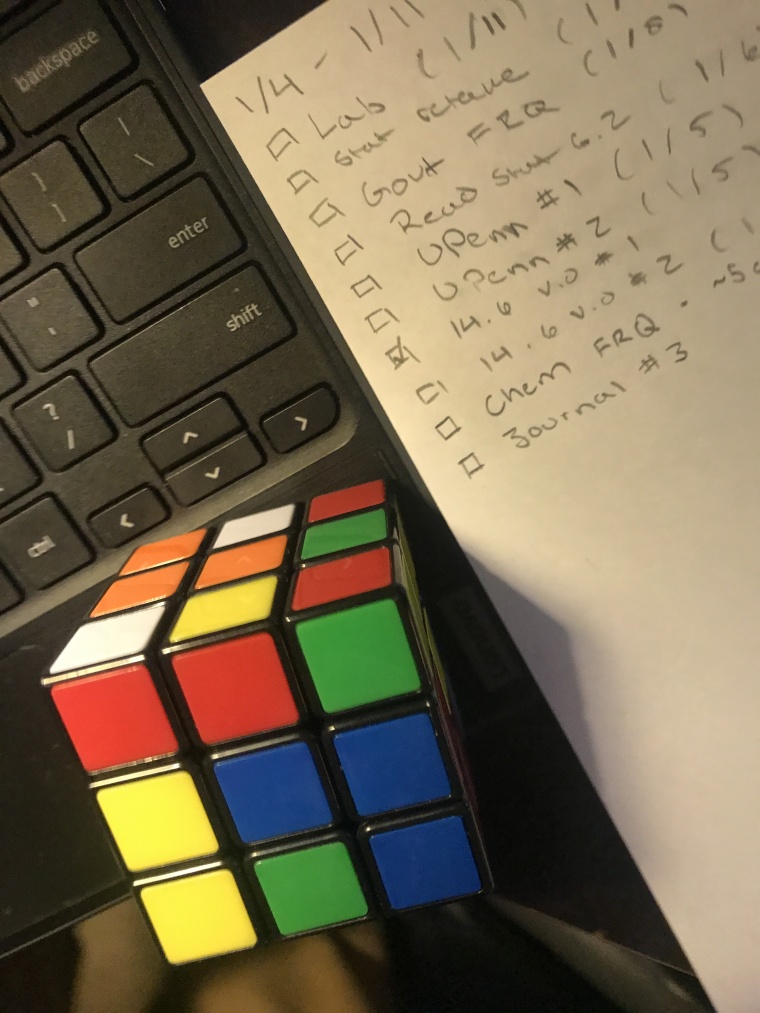 backspace
|
\
}
]
enter
"
'
shift
?
/
ctrl
1/4 - 1/11
Lab (1/11)
Stat octave (1/8)
Govt FRQ
Read Stat 6.2 (1/6
UPenn #1 (1/5)
UPenn #2 (1/5)
14.6 v.0 #1
14.6 v.0 #2 (1
Chem FRQ
Journal #3